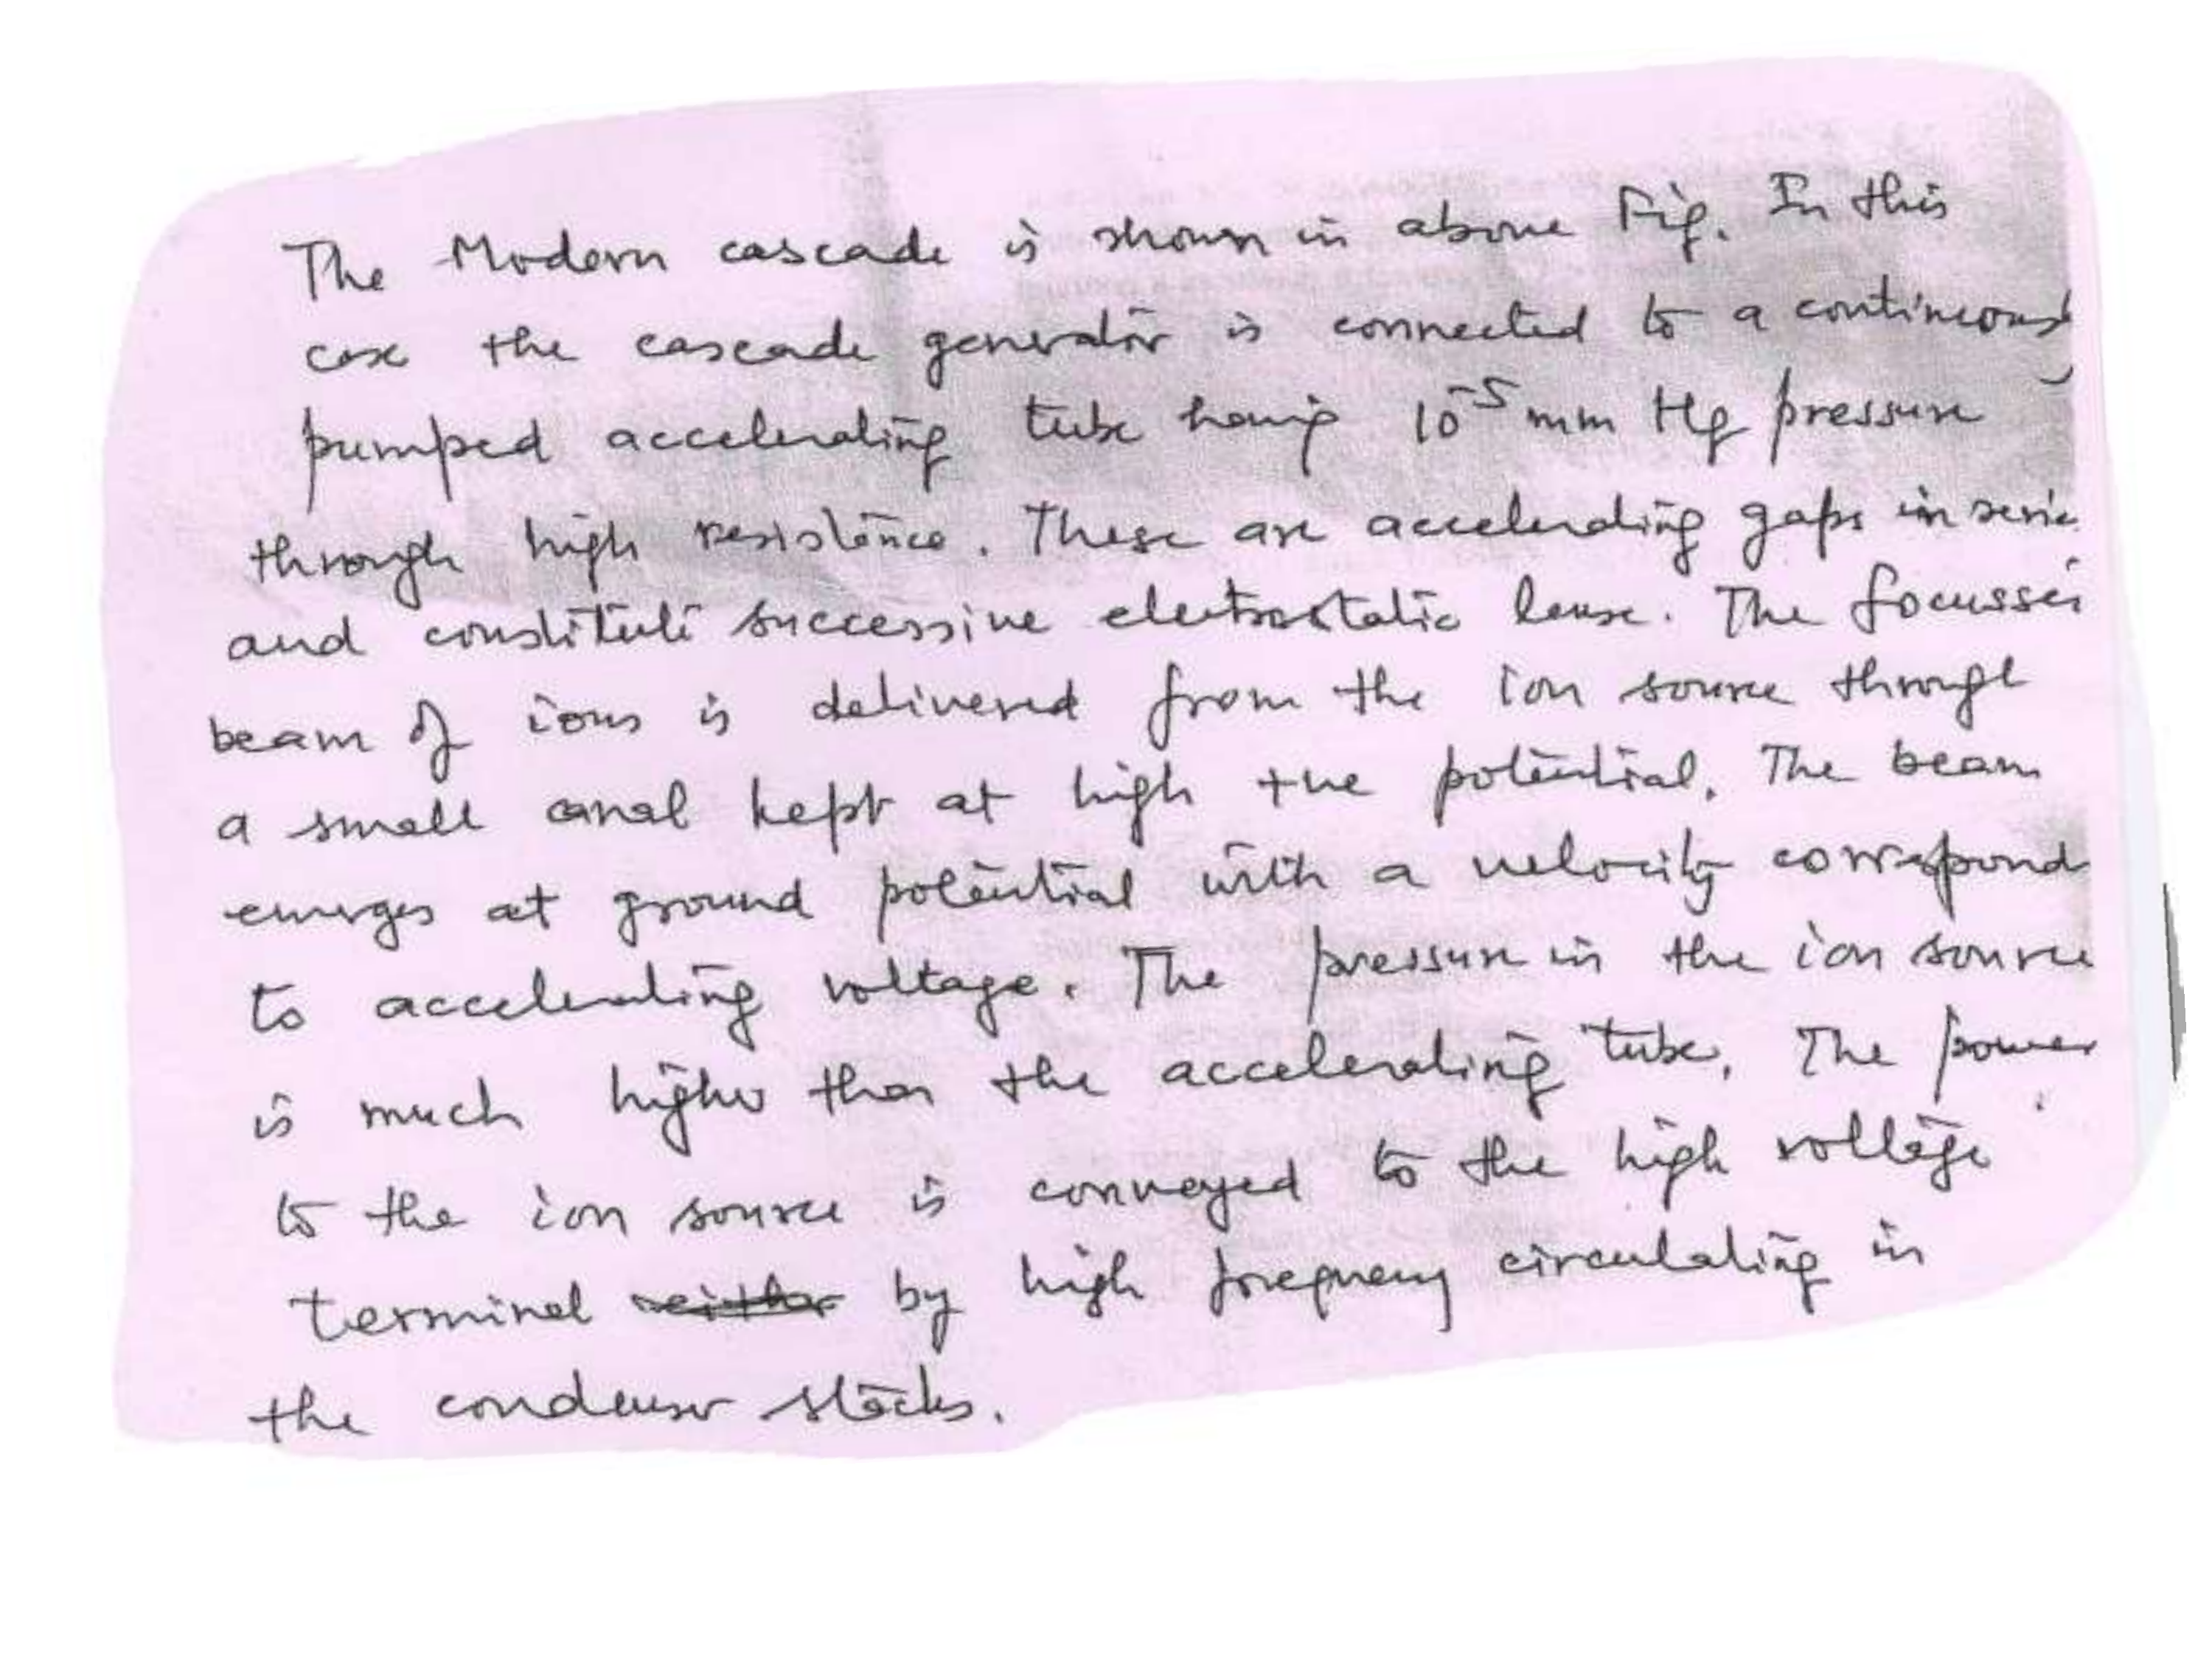 The Modern cascade is shown in above Fig. In this
case the cascade generator is connected to a continuously
pumped accelerating tube having 10⁻⁵ mm Hg pressure
through high resistance. These are accelerating gaps in serie
and constitute successive electrostatic lense. The focusse
beam of ions is delivered from the ion source through
a small canal kept at high +ve potential. The beam
emerges at ground potential with a velocity correspond
to accelerating voltage. The pressure in the ion source
is much higher than the accelerating tube. The power
to the ion source is conveyed to the high voltage
terminal neither by high frequency circulating in
the condenser stacks.